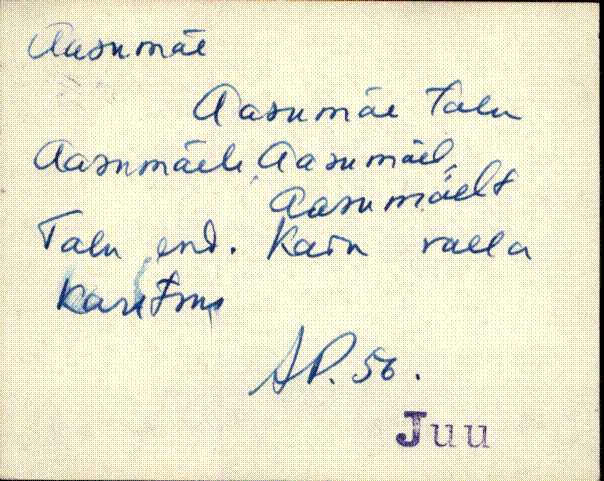 Aasumäe
Aasumäe talu
Aasumäele, Aasumäel,
Aasumäelt
Talu end. Kain valla
AP. 56.
Juu